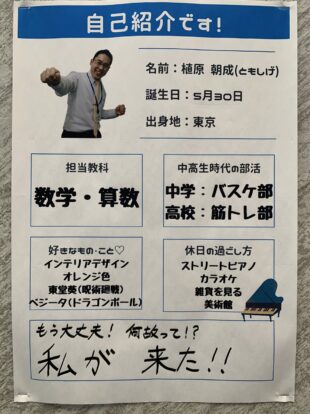 自己紹介です!
名前：植原 朝成(ともしげ)
誕生日：5月30日
出身地：東京
担当教科
数学・算数
中高生時代の部活
中学：バスケ部
高校：筋トレ部
好きなもの・こと♡
インテリアデザイン
オレンジ色
東堂葵(呪術廻戦)
ベジータ(ドラゴンボール)
休日の過ごし方
ストリートピアノ
カラオケ
雑貨を見る
美術館
もう大丈夫! 何故って!?
私が 来た!!